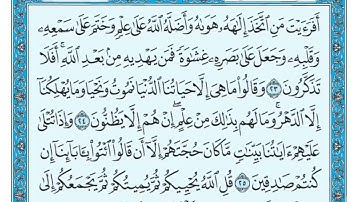 أَفَرَءَيْتَ مَنِ ٱتَّخَذَ إِلَٰهَهُۥ هَوَىٰهُ وَأَضَلَّهُ ٱللَّهُ عَلَىٰ عِلْمٍ وَخَتَمَ عَلَىٰ سَمْعِهِۦ
وَقَلْبِهِۦ وَجَعَلَ عَلَىٰ بَصَرِهِۦ غِشَٰوَةً فَمَن يَهْدِيهِ مِنۢ بَعْدِ ٱللَّهِ ۚ أَفَلَا
تَذَكَّرُونَ ٢٣ وَقَالُوا۟ مَا هِىَ إِلَّا حَيَاتُنَا ٱلدُّنْيَا نَمُوتُ وَنَحْيَا وَمَا يُهْلِكُنَآ
إِلَّا ٱلدَّهْرُ ۚ وَمَا لَهُم بِذَٰلِكَ مِنْ عِلْمٍ ۖ إِنْ هُمْ إِلَّا يَظُنُّونَ ٢٤ وَإِذَا تُتْلَىٰ
عَلَيْهِمْ ءَايَٰتُنَا بَيِّنَٰتٍ مَّا كَانَ حُجَّتَهُمْ إِلَّآ أَن قَالُوا۟ ٱئْتُوا۟ بِـَٔابَآئِنَآ إِن
كُنتُمْ صَٰدِقِينَ ٢٥ قُلِ ٱللَّهُ يُحْيِيكُمْ ثُمَّ يُمِيتُكُمْ ثُمَّ يَجْمَعُكُمْ إِلَىٰ